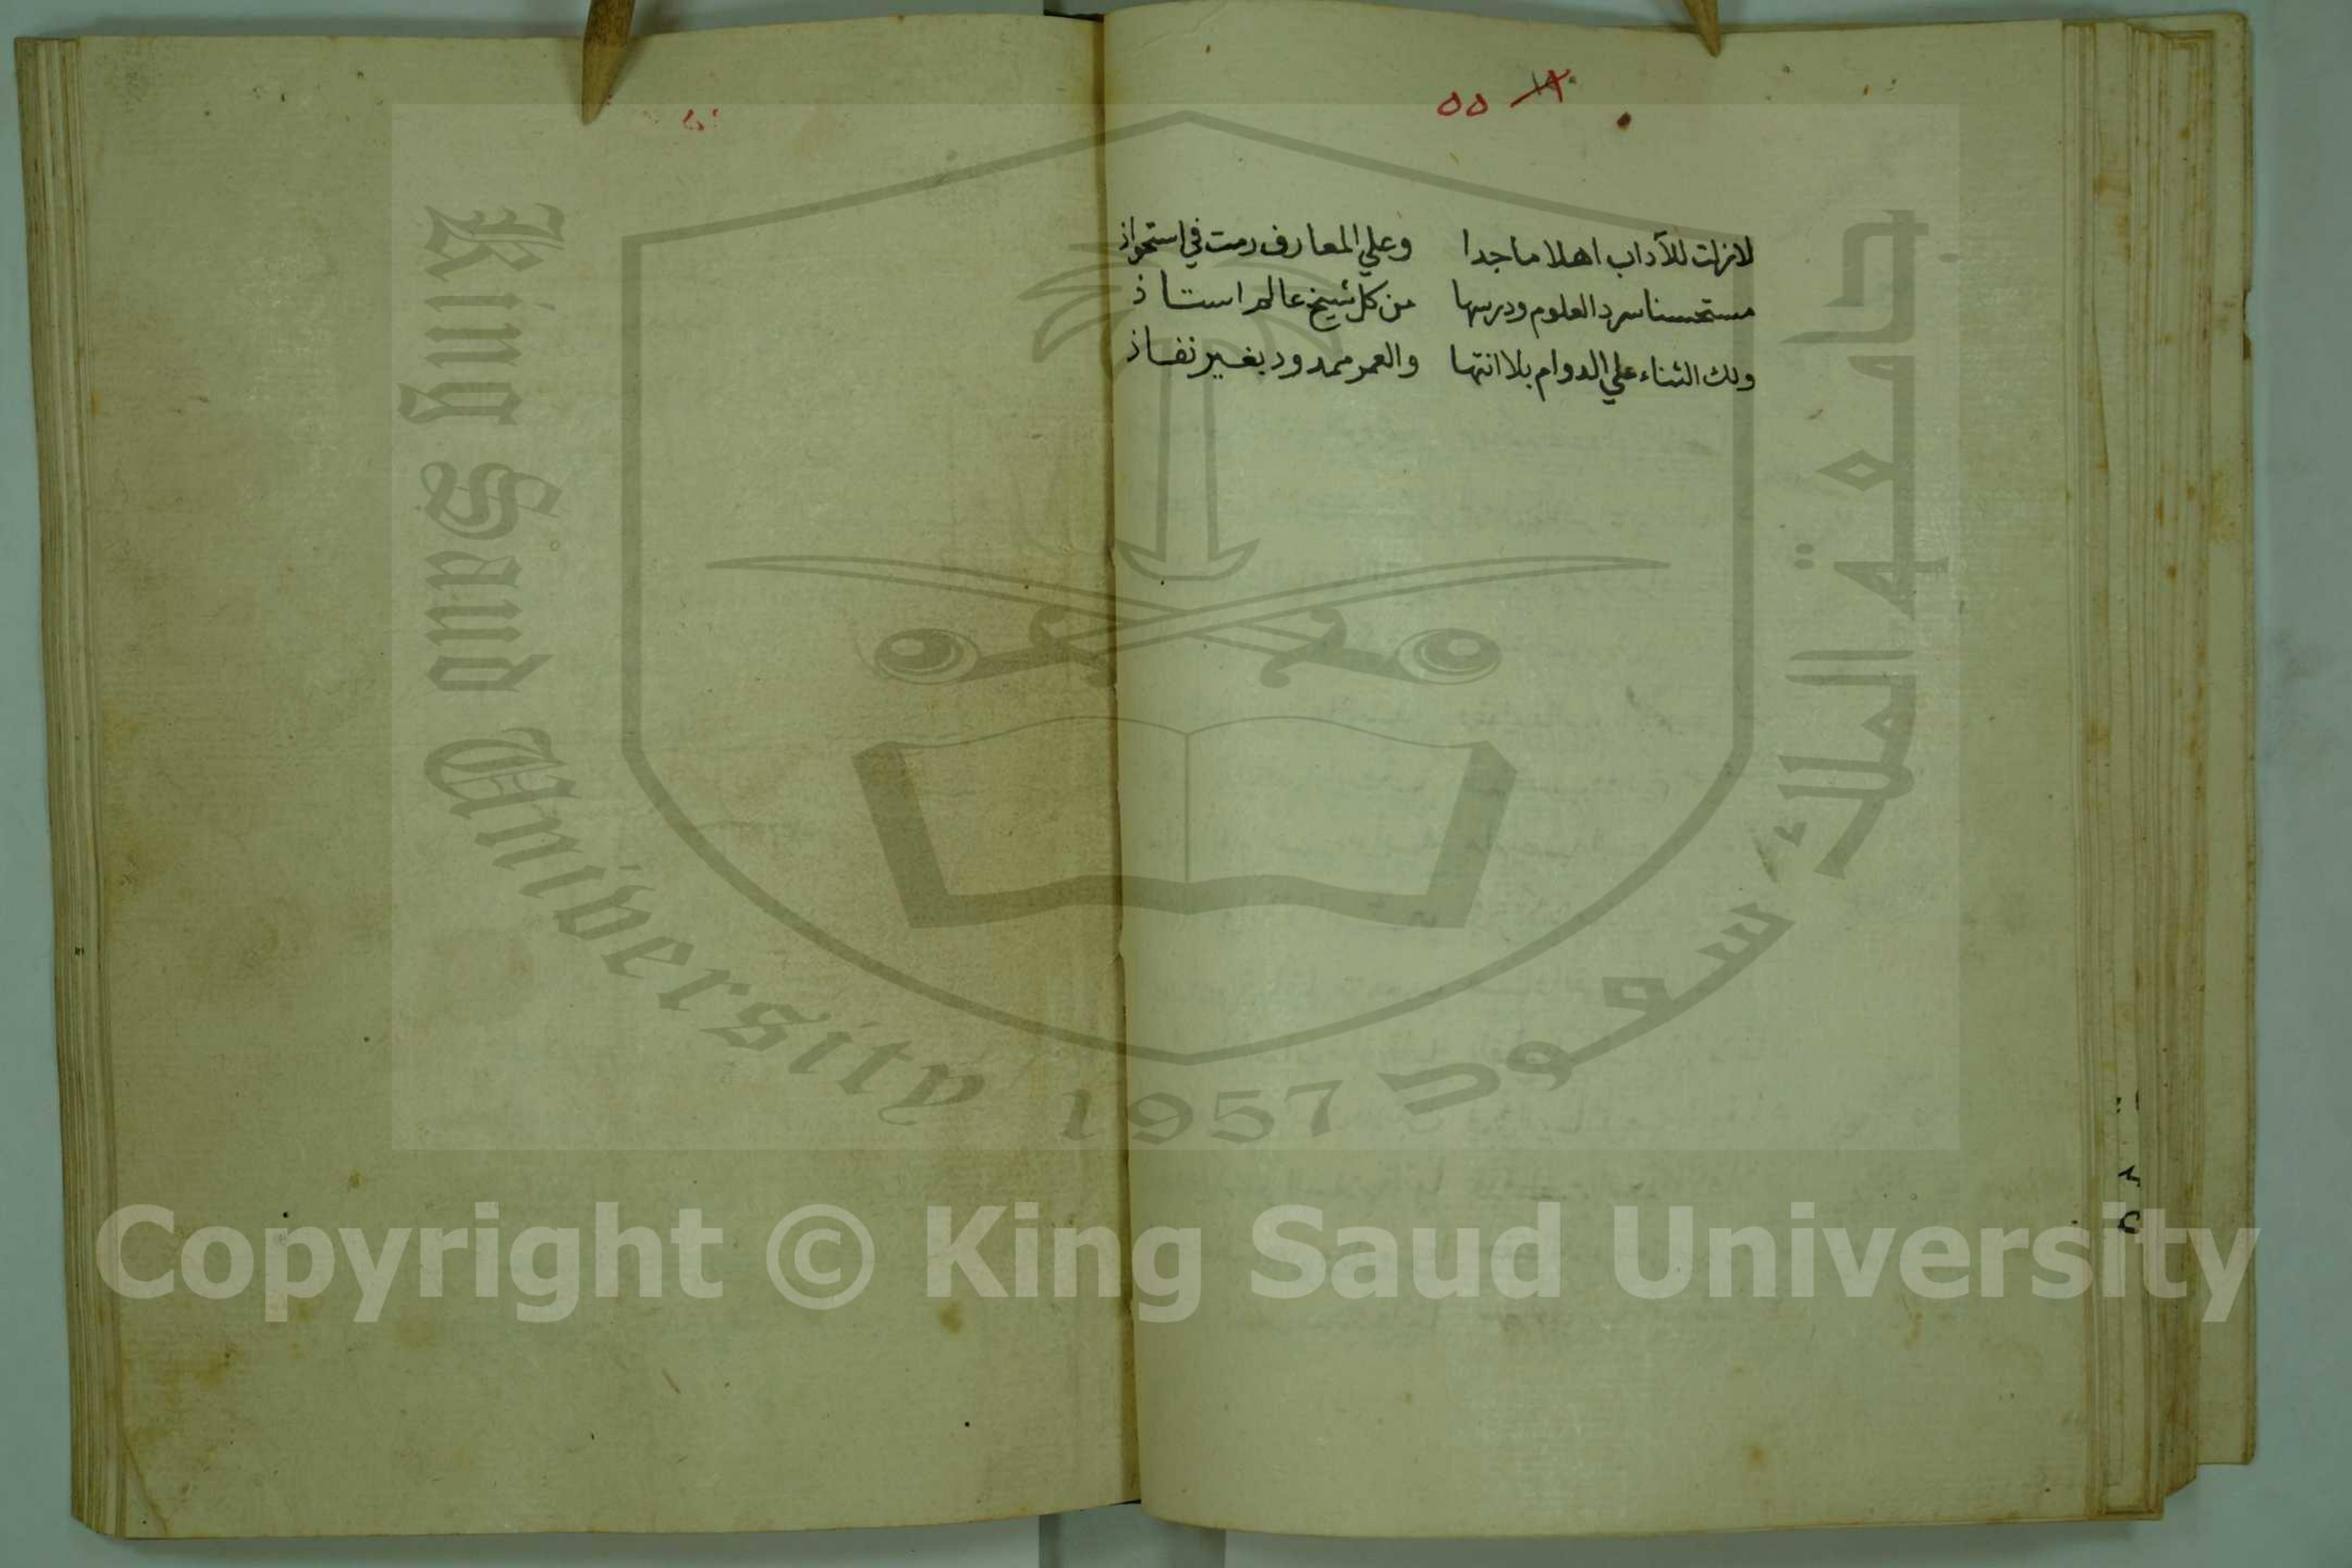 ٥٥
لازلت للآداب اهلا ماجدا وعلي المعارف دمت في استحواذ
مستحسنا سرد العلوم ودرسها من كل شيخ عالم استاذ
ولك الثناء علي الدوام بلا انتها والعمر ممدود بغير نفاذ
King Saud University 1957
جامعة الملك سعود
Copyright © King Saud University